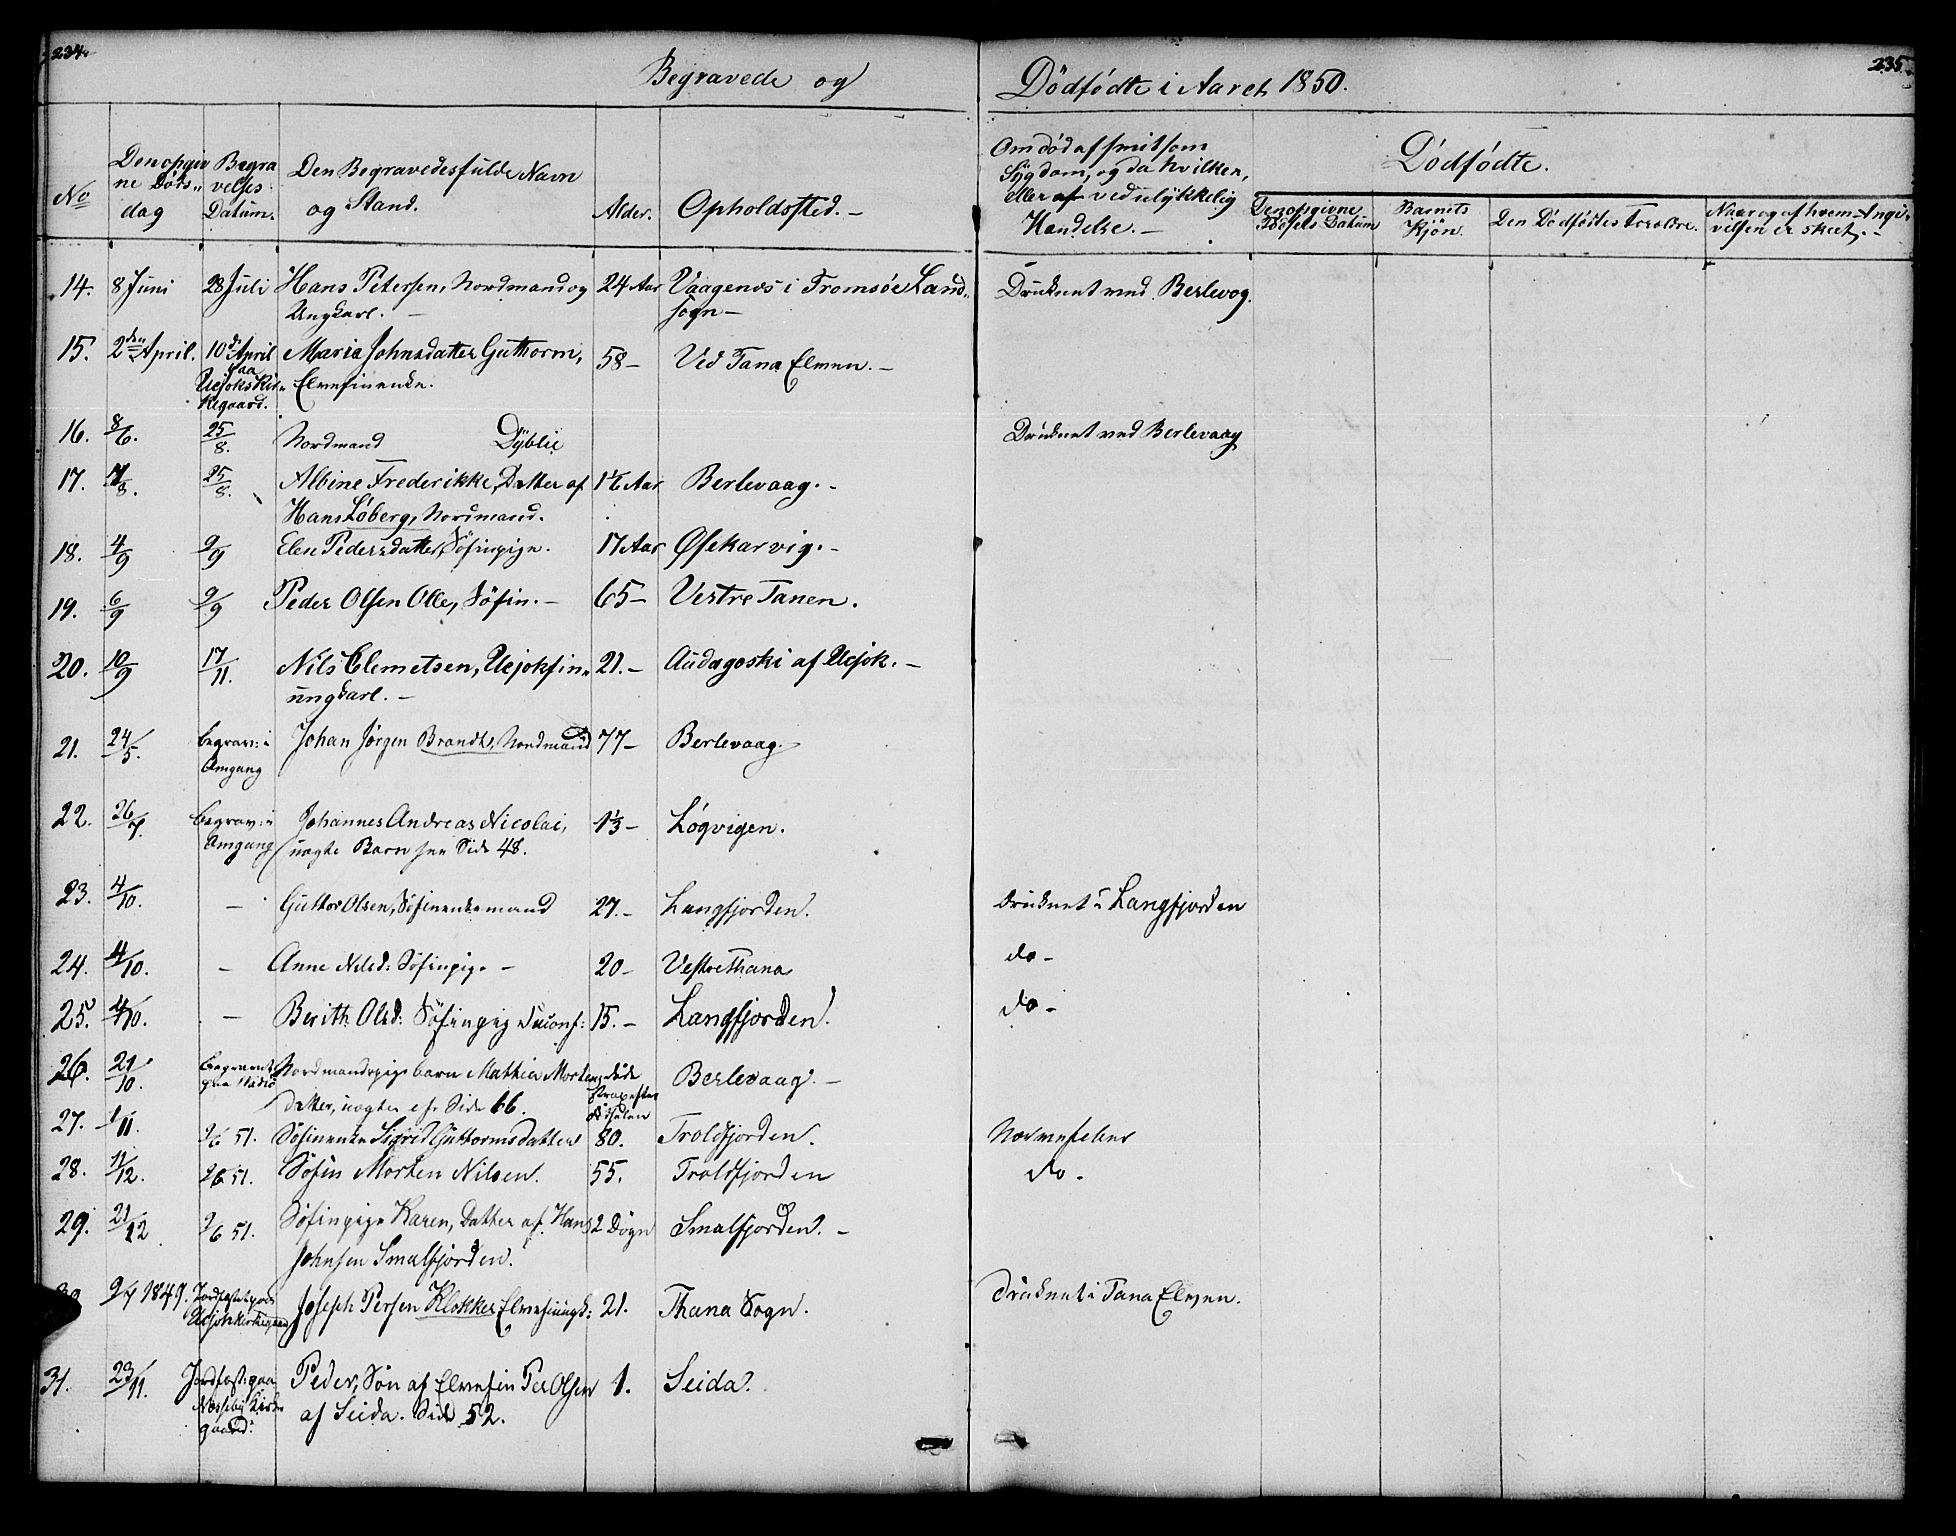 234.
235.
Begravede og
Dödfödte i Aaret 1850.
No
Den opgiv
ne Döds„
dag
Begra
velses
Datum.
Den Begravedes fulde Navn
og Stand.
Alder.
Opholdssted.-
Om död af smitsom
Sygdom, og da hvilken,
eller af ved ulykkelig
Handelse.-
Dödfödte.
Den opgivne
Födsels Datum
Barnets
Kjön.
Den Dödfödtes Forældre.
Naar og af hvem Angi„
velsen er skeet.-
14. 8 Juni 28 Juli Hans Petersen, Nordmand og 24 Aar Vaagenes i Tromsöe Land„ Drüknet ved Berlevog.
Ungkarl.- sogn-
15. 2den April. 10de April Maria Johnsdatter Guttorm, 58- Ved Tana Elven.-
paa
Ucjoks Kir„ Elvefinenke.
kegaard.
16. 8/6. 25/8. Nordmand Dÿblie Drüknet ved Berlevaag
17. 7/8. 25/8. Albine Frederikke, Datter af 1½ Aar Berlevaag.-
Hans Löberg, Nordmand.
18. 4/9 9/9 Elen Pedersdatter, Söfinpige. 17 Aar Øsekarvig.-
19. 6/9 9/9 Peder Olsen Olle, Söfin.- 65- Vestre Tanen.
20. 10/9 17/11. Nils Clemetsen, Ucjoksfin„ 21.- Audagoski af Ucjok.-
ungkarl.-
21. 24/5. begrav: i Johan Jörgen Brandt, Nordmand 77- Berlevaag.
Omgang
22. 26/7. begrav: i Johannes Andreas Nicolai, 1⅓- Lögvigen.
Omgang uægte Barn see Side 48.
23. 4/10. - Guttor Olsen, Söfinenkemand 27.- Langfjorden. drüknet i Langfjorden
24. 4/10. - Anne Nilsd: Söfinpige- 20- Vestre Thana do-
25. 4/10. - Berith Olsd: Söfinpige 15.- Langfjorden. do-
26. 21/10. begravet Nordmandspige barn Mathia Mortens döde Berlevaag.-
paa datter, uægte Side 66. strax efter
Födselen
27. 1/11. 9/6 51. Söfinenke Sigrid Guttormsdatter 80. Troldfjorden. Nervefeber
28. 11/12. 9/6 51. Söfin Morten Nilsen. 55. Troldfjorden do-
29. 21/12 9/6 51. Söfinpige Karen, Datter af Hans 2 Dögn Smalfjorden.-
Johnsen Smalfjorden.
30 9/7 1849. Jordfæstet paa Joseph Persen Klokker Elvefinungk: 21. Thana Sogn. drüknet i Tana Elven.
Ucjok Kirkegaard
31. 23/11. Jordfæst paa Peder, Sön af Elvefin Per Olsen 1. Seida.
Næsseby Kirke af Seida. Side 52.
gaard.